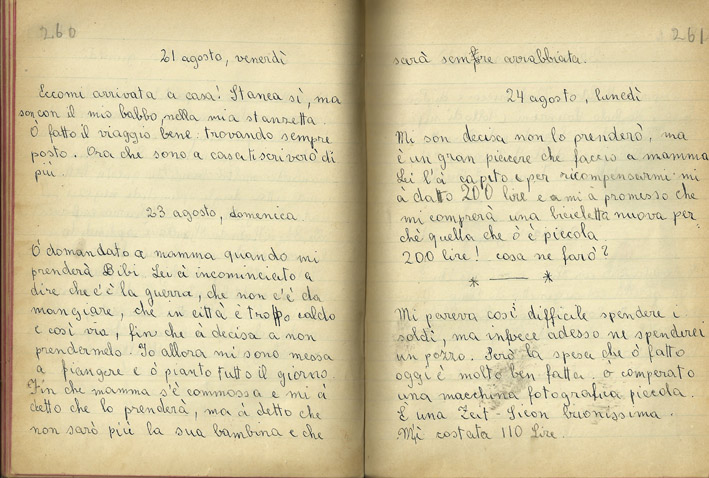 260
21 agosto, venerdì
Eccomi arrivata a casa! Stanca sì, ma
son con il mio babbo, nella mia stanzetta.
Ò fatto il viaggio bene trovando sempre
posto. Ora che sono a casa ti scriverò di
più.
23 agosto, domenica.
Ò domandato a mamma quando mi
prenderà Bibi Lei à incominciato a
dire che c'è la guerra, che non c'è da
mangiare, che in città è troppo caldo
e così via, fin che à decisa a non
prendermelo. Io allora mi sono messa
a piangere e ò pianto tutto il giorno.
Fin che mamma s'è commossa e mi à
detto che lo prenderà, ma à detto che
non sarò più la sua bambina e che
261
sarà sempre arrabbiata.
24 agosto, lunedì
Mi son decisa non lo prenderò, ma
è un gran piacere che faccio a mamma
Lei l'à capito e per ricompensarmi mi
à datto 200 lire e a mi à promesso che
mi comprerà una bicicletta nuova per-
chè quella che ò è piccola.
200 lire! cosa ne farò?
* — *
Mi pareva così difficile spendere i
soldi, ma invece adesso ne spenderei
un pozzo. Però la spesa che ò fatto
oggi è molto ben fatta. ò comperato
una macchina fotografica piccola.
È una buonissima.
Mi costata 110 Lire.